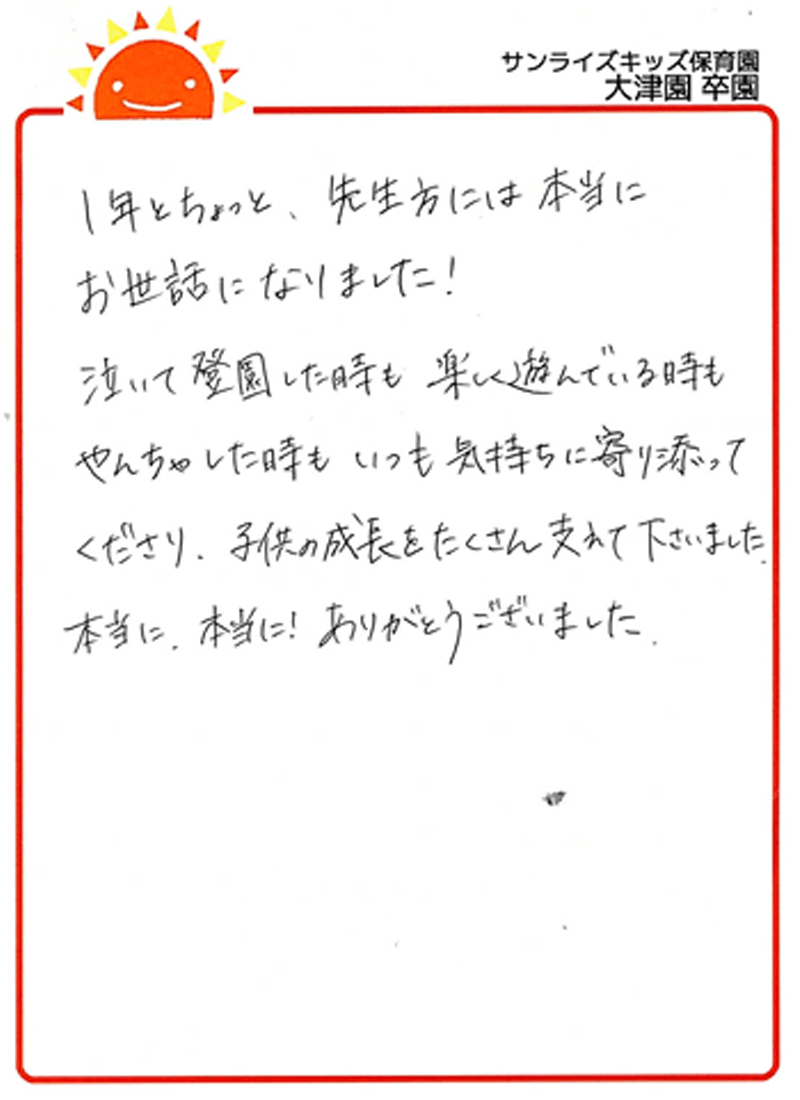 サンライズキッズ保育園
大津園 卒園
1年とちょっと、先生方には本当に
お世話になりました!
泣いて登園した時も 楽しく遊んでいる時も
やんちゃした時も いつも気持ちに寄り添って
くださり、子供の成長をたくさん支えて下さいました。
本当に、本当に!ありがとうございました。